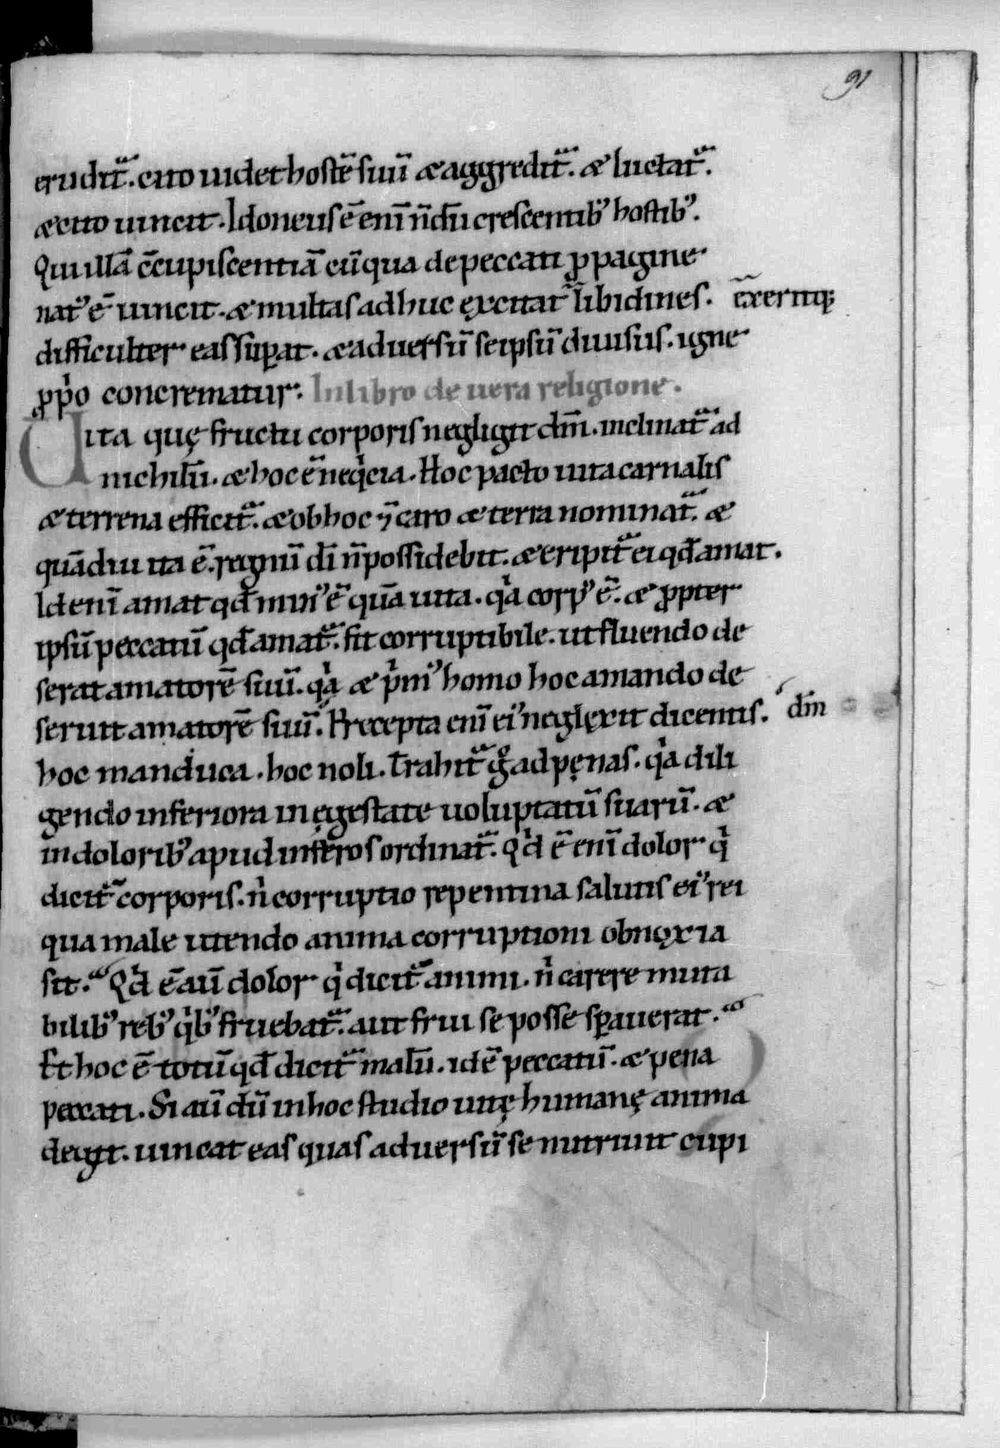 91
erudit᷑. cito uidet hostē suū æ aggredit᷑. æ luctat᷑.
æ cito uincit. Idoneus ē enī n̄dū crescentib᷒ hostib᷒.
Qui illā c̄cupiscentiā cū qua de peccati ꝓpagine
nat᷒ ē uincit. æ multas adhuc ęxcitat᷑ libidines. c̄xeritq;
difficulter eas suꝑat. æ aduersū se ipsū diuisus. igne
ꝓp̍o concrematur. In libro de uera religione.
Uita quę fructu corporis negligit dm̄. inclinat᷑ ad
nichilū. æ hoc ē neq̍cia. Hoc pacto uita carnalis
æ terrena efficit᷑. æ ob hoc ⁊ caro æ terra nominat᷑. æ
quādiu ita ē. regnū dī n̄ possidebit. æ eripit᷑ ei qđ amat.
Id enī amat qđ min᷒ ē quā uita. q̍a corp᷒ ē. æ ꝓpter
ipsū peccatū qđ amat᷑. fit corruptibile. ut fluendo de
serat amatorē suū. q̍a æ p̍m᷒ homo hoc amando de
seruit amatorē suū. Precepta enī ei᷒ neglęxit dicentis. dm̄
hoc manduca. hoc noli. Trahit᷑ g̊ ad pęnas. q̍a dili
gendo inferiora in ęgestate uoluptatū suarū. æ
in dolorib᷒ apud inferos ordinat᷑. Q̍d ē enī dolor q̍
dicit᷑ corporis. n̍ corruptio repentina salutis ei᷒ rei
qua male utendo anima corruptioni obnęxia
sit. Q̍d ē aū dolor q̍ dicit᷑ animi. n̍ carere muta
bilib᷒ reb᷒ q̍b᷒ fruebat᷑. aut frui se posse sꝑauerat.
Et hoc ē totū qđ dicit᷑ malū. id ē peccatū. æ pena
peccati. Si aū dū in hoc studio uitę humanę anima
degit. uincat eas quas aduersū se nutriuit cupi